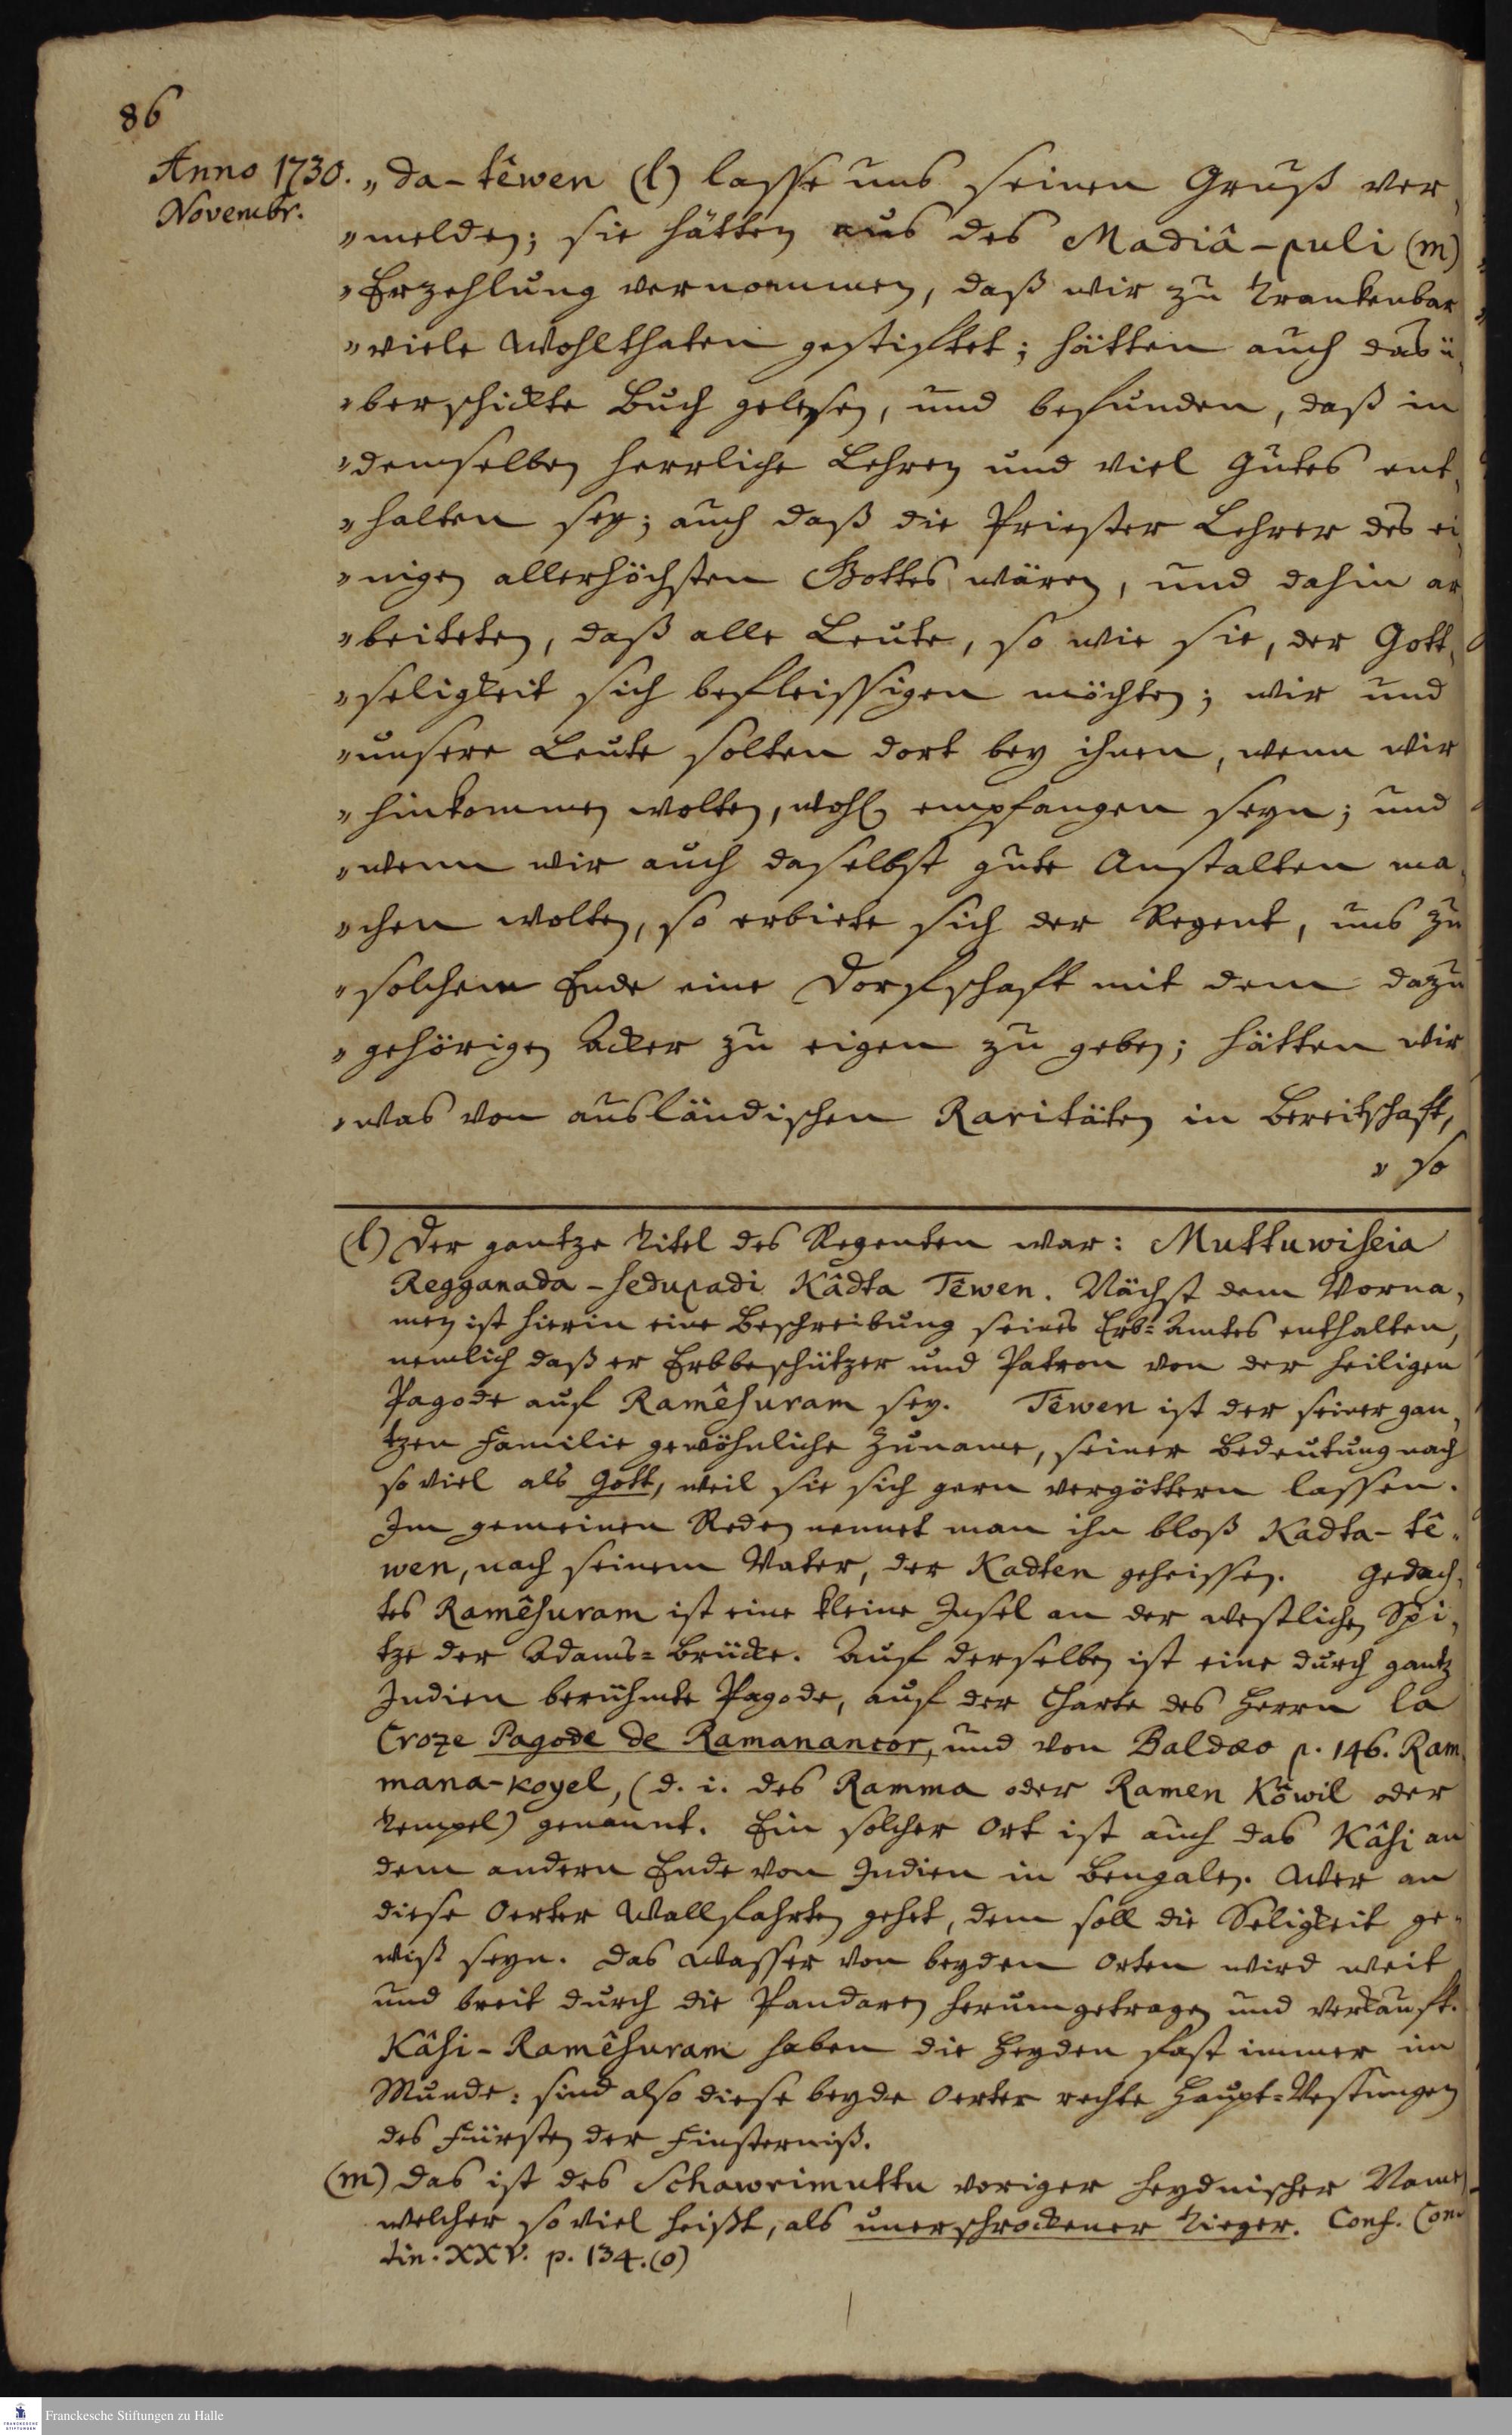 86
Anno 1730.
Novembr.
„da-têwen (l) lasse uns seinen Gruß ver„
„melden; sie hätten aus des Madiâ-puli (m)
„Erzehlung vernommen, daß wir zu Trankenbar
„viele Wohlthaten gestifftet; hätten auch das ü„
„berschickte Buch gelesen, und befunden, daß in
„demselben herrliche Lehren und viel Gutes ent„
„halten sey; auch daß die Priester Lehrer des ei„
„nigen allerhöchsten Gottes wären, und dahin ar„
„beiteten, daß alle Leute, so wie sie, der Gott„
„seligkeit sich befleissigen möchten; wir und
„unsere Leute solten dort bey ihnen, wenn wir
„hinkommen wolten, wohl empfangen seyn; und
„wenn wir auch daselbst gute Anstalten ma„
„chen wolten, so erbiete sich der Regent, uns zu
„solchem Ende eine Dorfschafft mit dem dazu
„gehörigen Acker zu eigen zu geben; hätten wir
„was von ausländischen Raritäten in Bereitschafft,
„so
(l) Der gantze Titel des Regenten war: Muttuwiseia
Regganada-sedupadi Kâdta Têwen. Nächst dem Vorna„
men ist hierin eine Beschreibung seines Erb-Amtes enthalten,
nemlich daß er Erbbeschützer und Patron von der heiligen
Pagode auf Ramêsuram sey. Têwen ist der seiner gan„
tzen Familie gewöhnliche Zuname, seiner Bedeutung nach
so viel als Gott, weil sie sich gern vergöttern lassen.
Im gemeinen Reden nennet man ihn bloß Kadta-tê„
wen, nach seinem Vater, der Kadten geheissen. Gedach„
tes Ramêsuram ist eine kleine Insel an der westlichen Spi„
tze der Adams-Brücke. Auf derselben ist eine durch gantz
Indien berühmte Pagode, auf der Charte des Herrn la
Croze Pagode de Ramanancor, und von Baldæo p. 146. Ram„
mana-koyel, (d. i. des Ramma oder Ramen Kôwil oder
Tempel) genannt. Ein solcher Ort ist auch das Kâsi an
dem andern Ende von Indien in Bengalen. Wer an
diese Oerter Wallfahrten gehet, dem soll die Seligkeit ge„
wiß seyn. Das Wasser von beyden Orten wird weit
und breit durch die Pandaren herumgetragen und verkaufft.
Kâsi-Ramêsuram haben die Heyden fast immer im
Munde: sind also diese beyde Oerter rechte Haupt-Vestungen
des Fürsten der Finsterniß.
(m) Das ist des Schawrimuttu voriger heydnischer Name
welcher so viel heißt, als unerschrockener Tieger. Conf. Con„
tin. XXV. p. 134. (o)
FRANCKESCHE STIFTUNGEN
Franckesche Stiftungen zu Halle